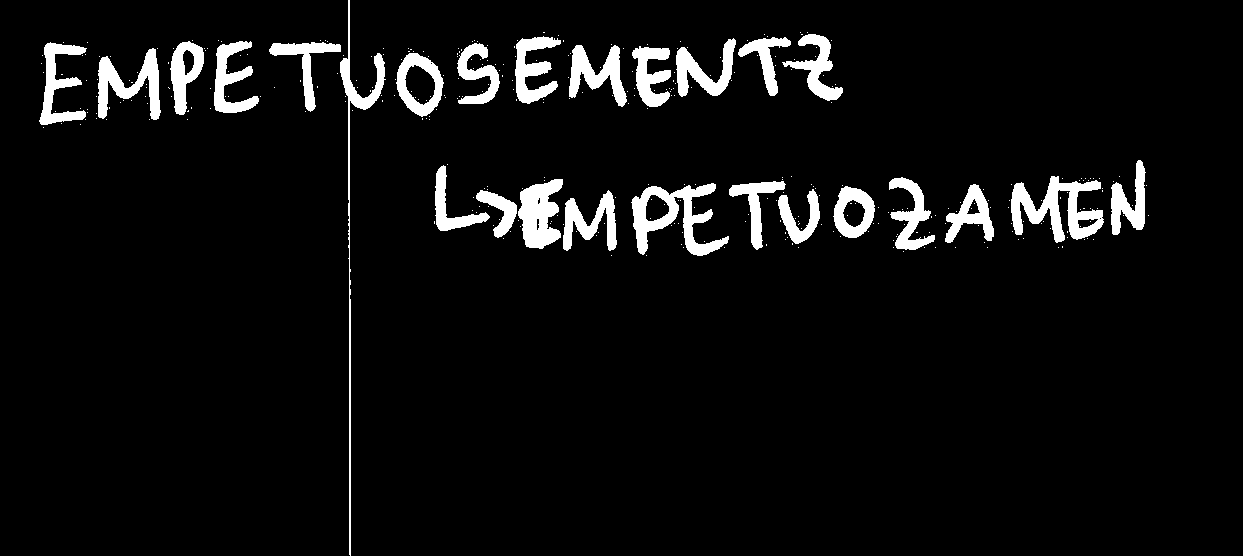 EMPETUOSEMENTZ
↳EMPETUOZAMEN